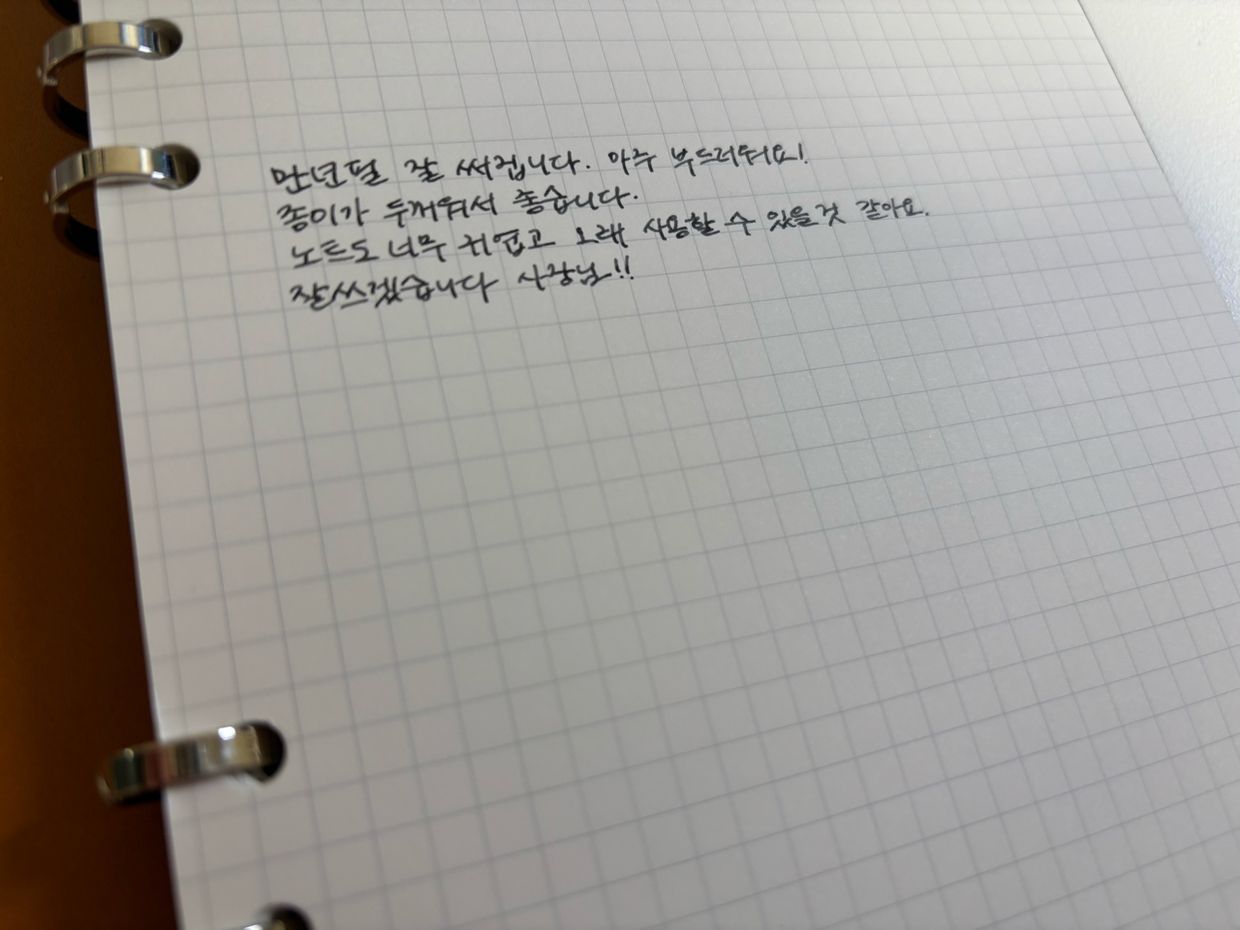 만년필 잘 써집니다. 아주 부드러워요!
종이가 두꺼워서 좋습니다.
노트도 너무 귀엽고 오래 사용할 수 있을것 같아요.
잘쓰겠습니다 사장님!!